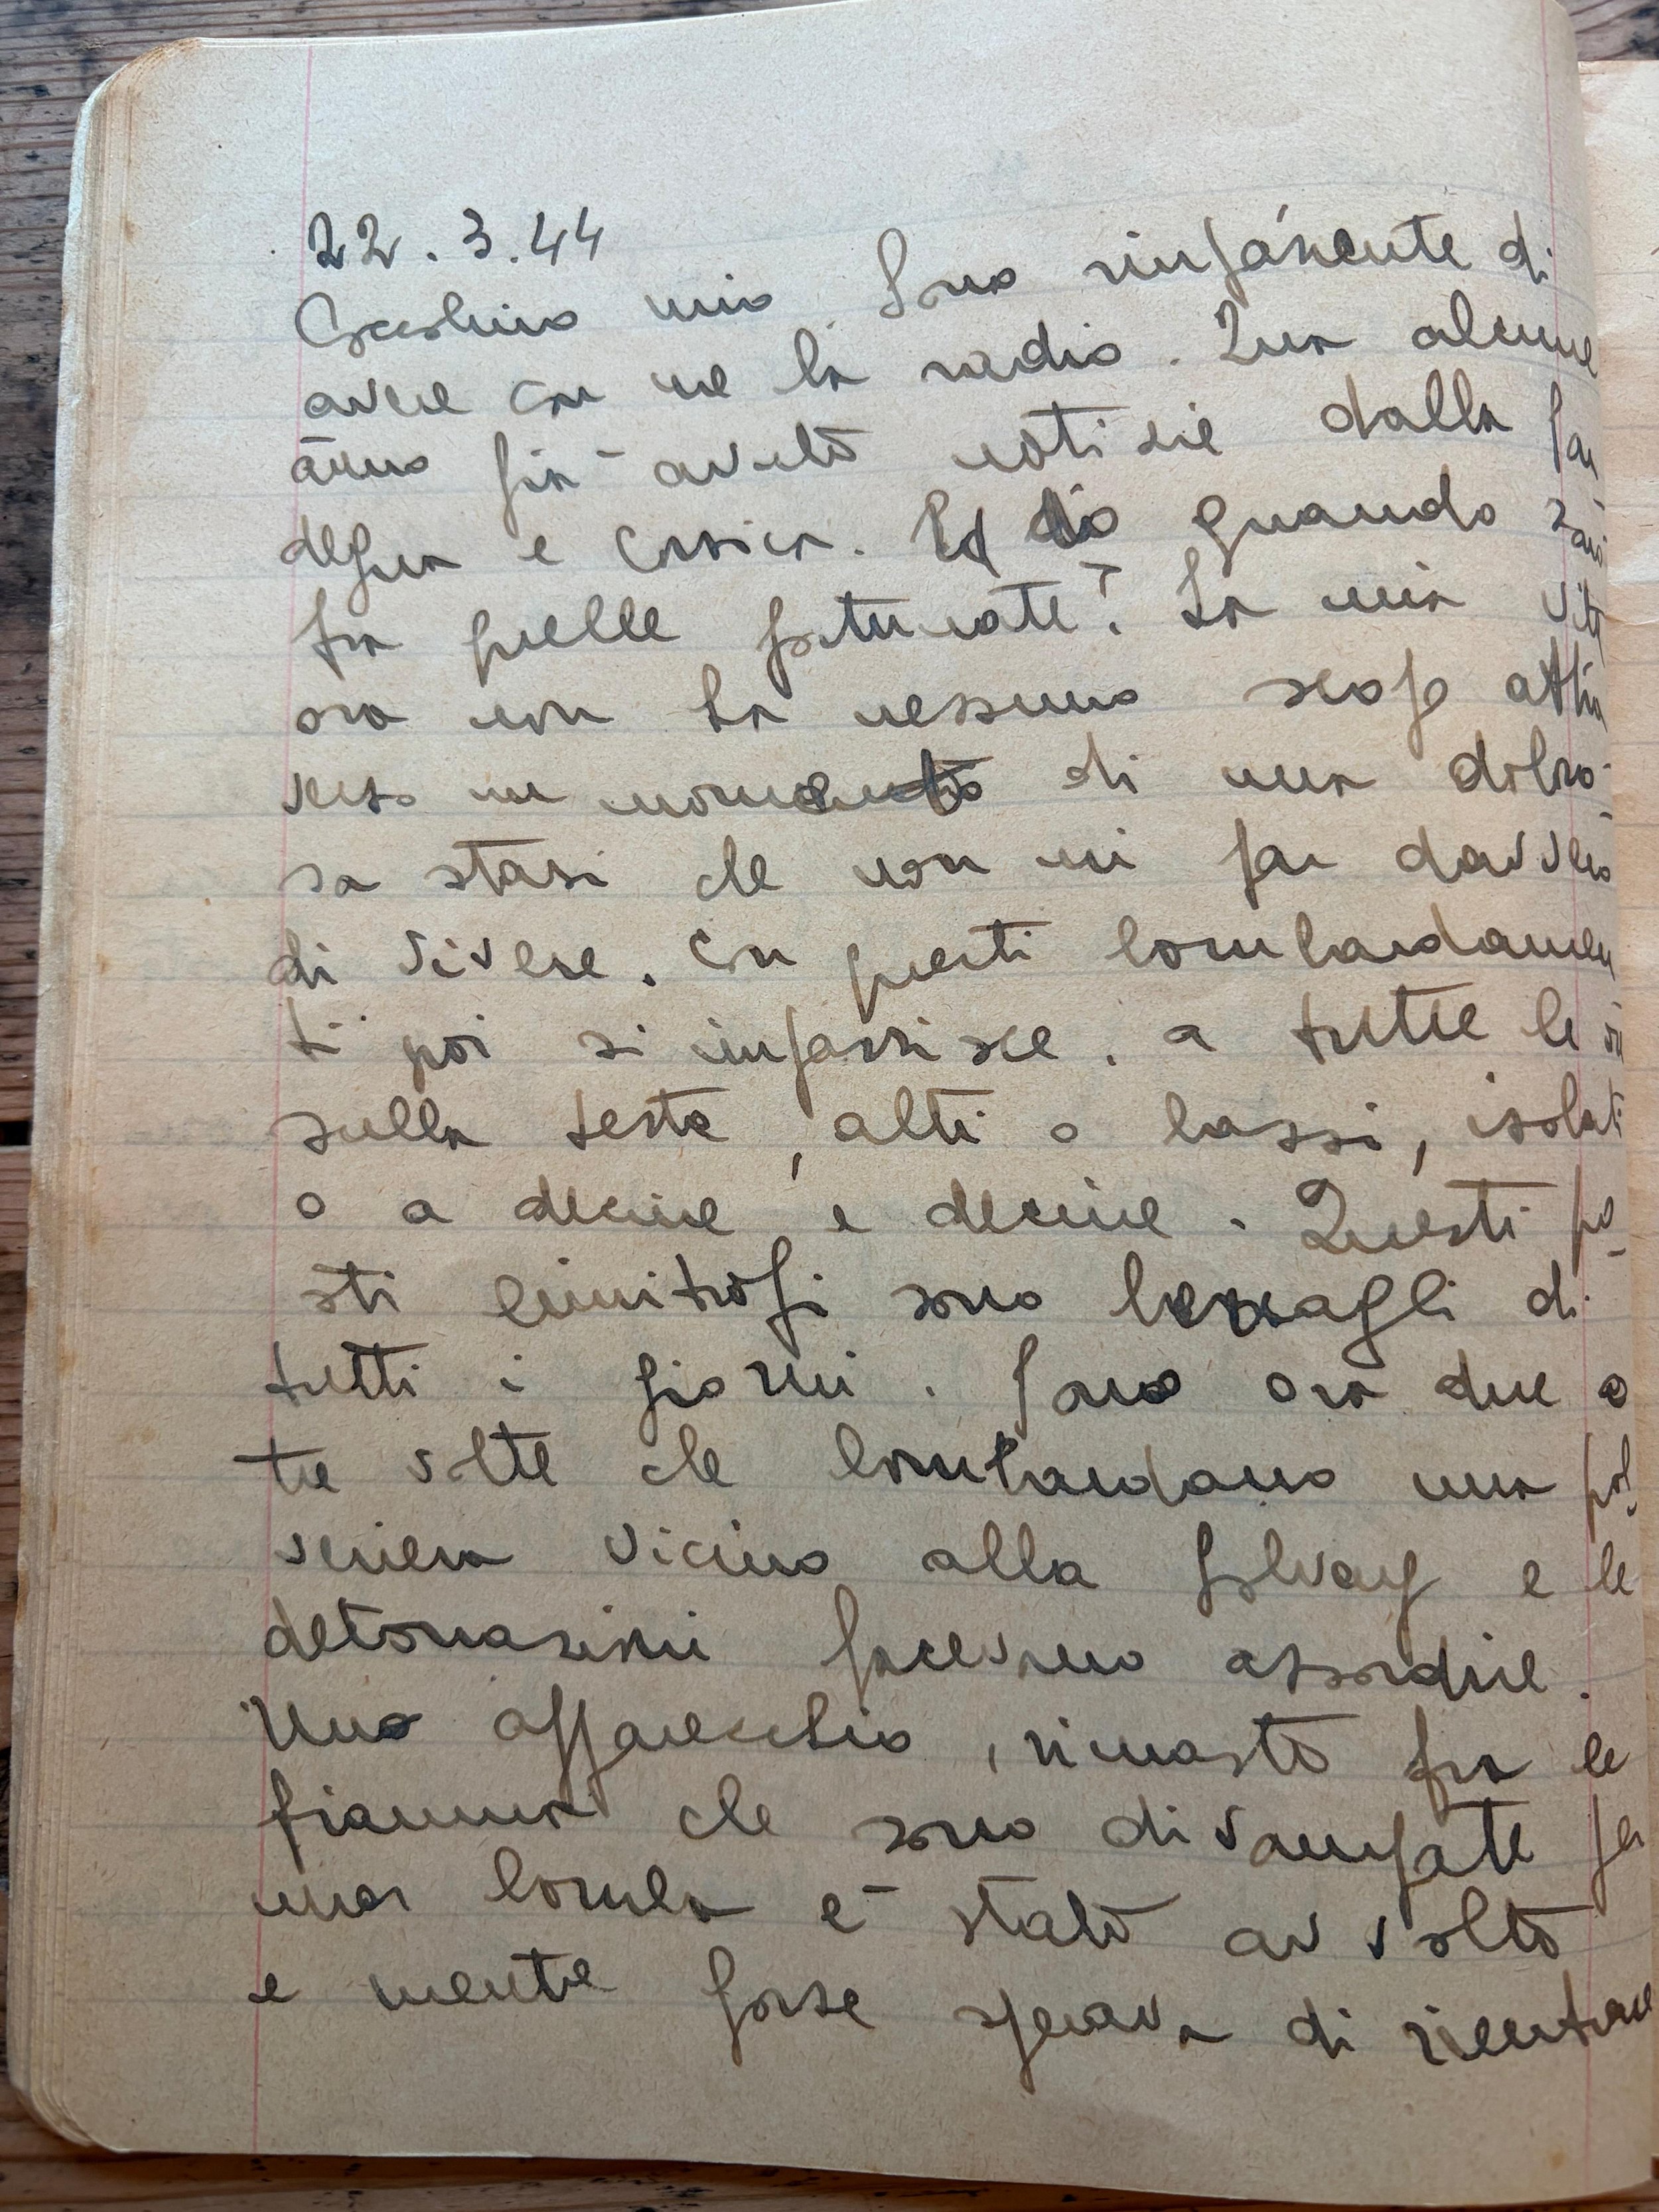 22.3.44
mio. Sono rimpiangente di
avere con me la radio. Qua alcune
ànno già avuto notizie dalla Sar
degna e Corsica. Ed io quando sarò
fra quelle fortunate? La mia vita
ora non ha nessuno scopo attra
verso un momento di una doloro-
sa stasi che non mi fa davvero
di vivere. Con questi bombardamen
ti poi si impazzisce. a tutte le
sulla testa, alti o bassi, isolati
o a decine e decine. Questi po-
sti limitrofi sono bersagli di
tutti i giorni. Sono ora due o
tre volte che bombardano una pol
veriera vicino alla Solvay e le
detonazioni facevano assordire.
Uno apparecchio, rimasto fra le
fiamme che sono divampate per
una bomba è stato avvolto
e mentre forse sperava di rientrare